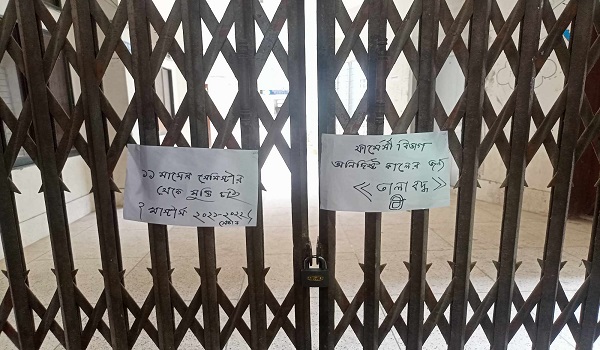 ১১ মাসের সেমিস্টার
থেকে মুক্তি চাই
মাস্টার্স ২০২১-২০২২
সেশন
ফার্মেসী বিভাগ
অনির্দিষ্ট কালের জন্য
<< তালা বদ্ধ >>